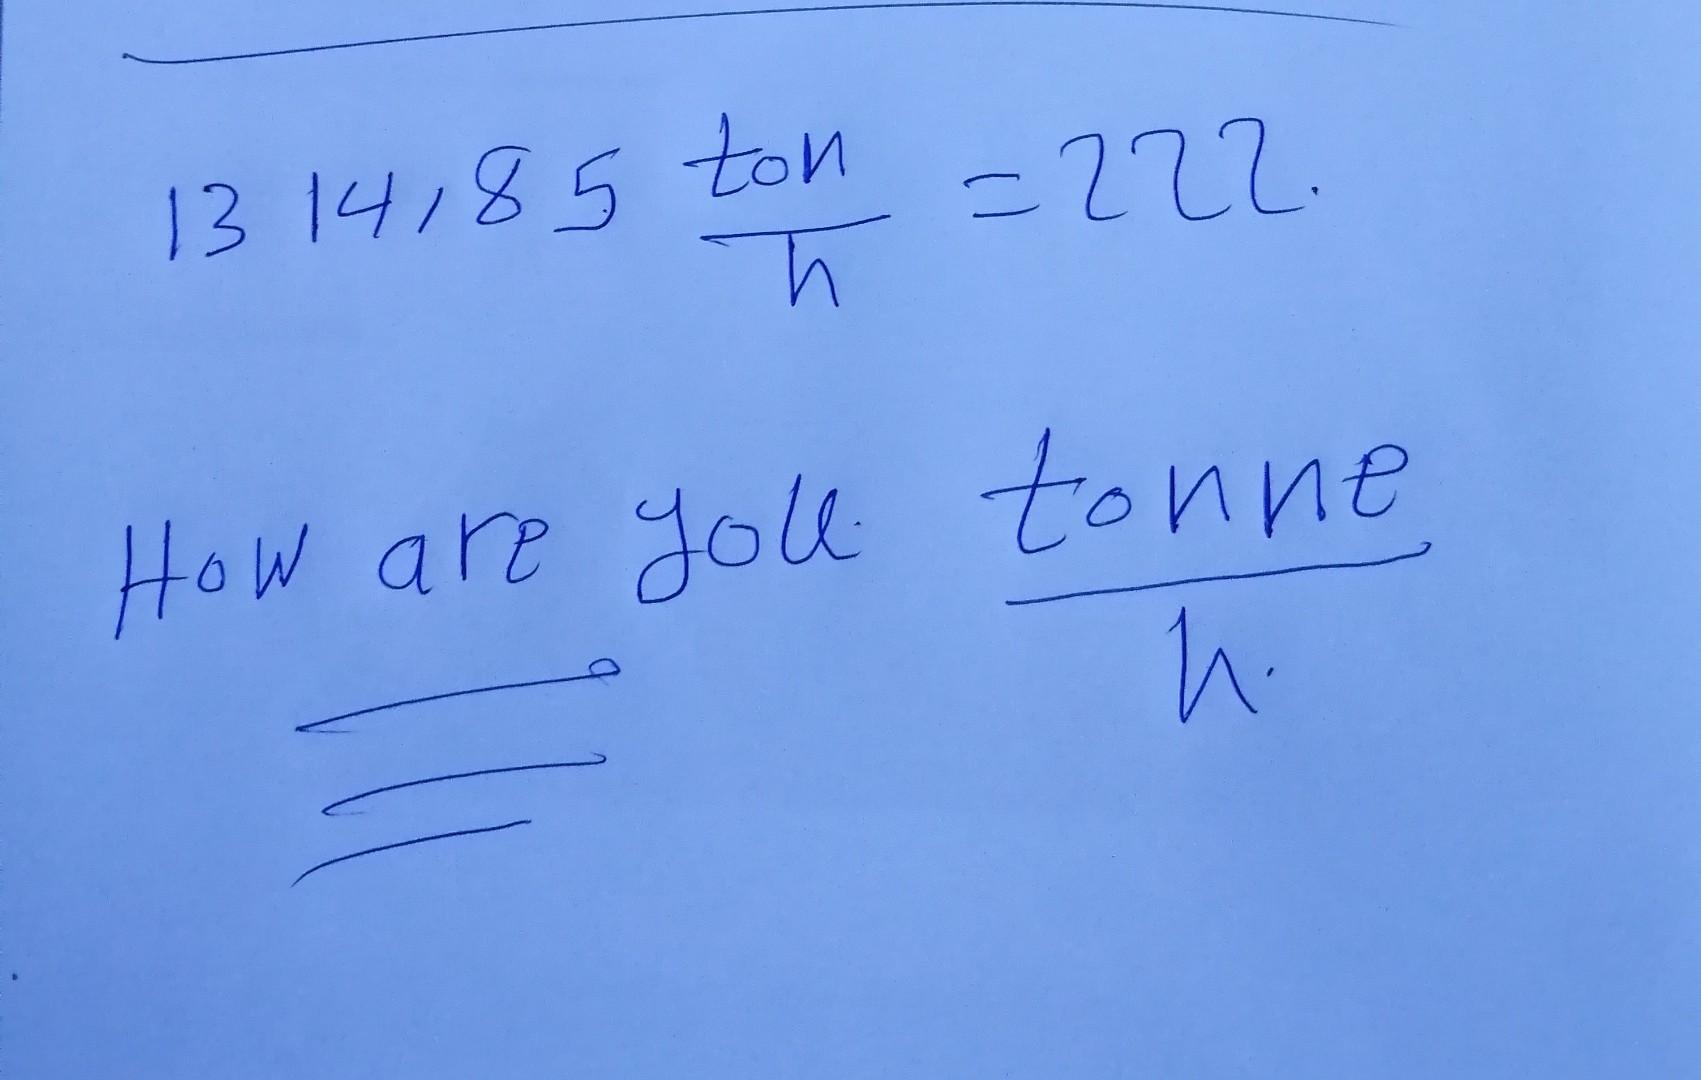 1314,85 ton/h = 222.
How are you tonne/h.